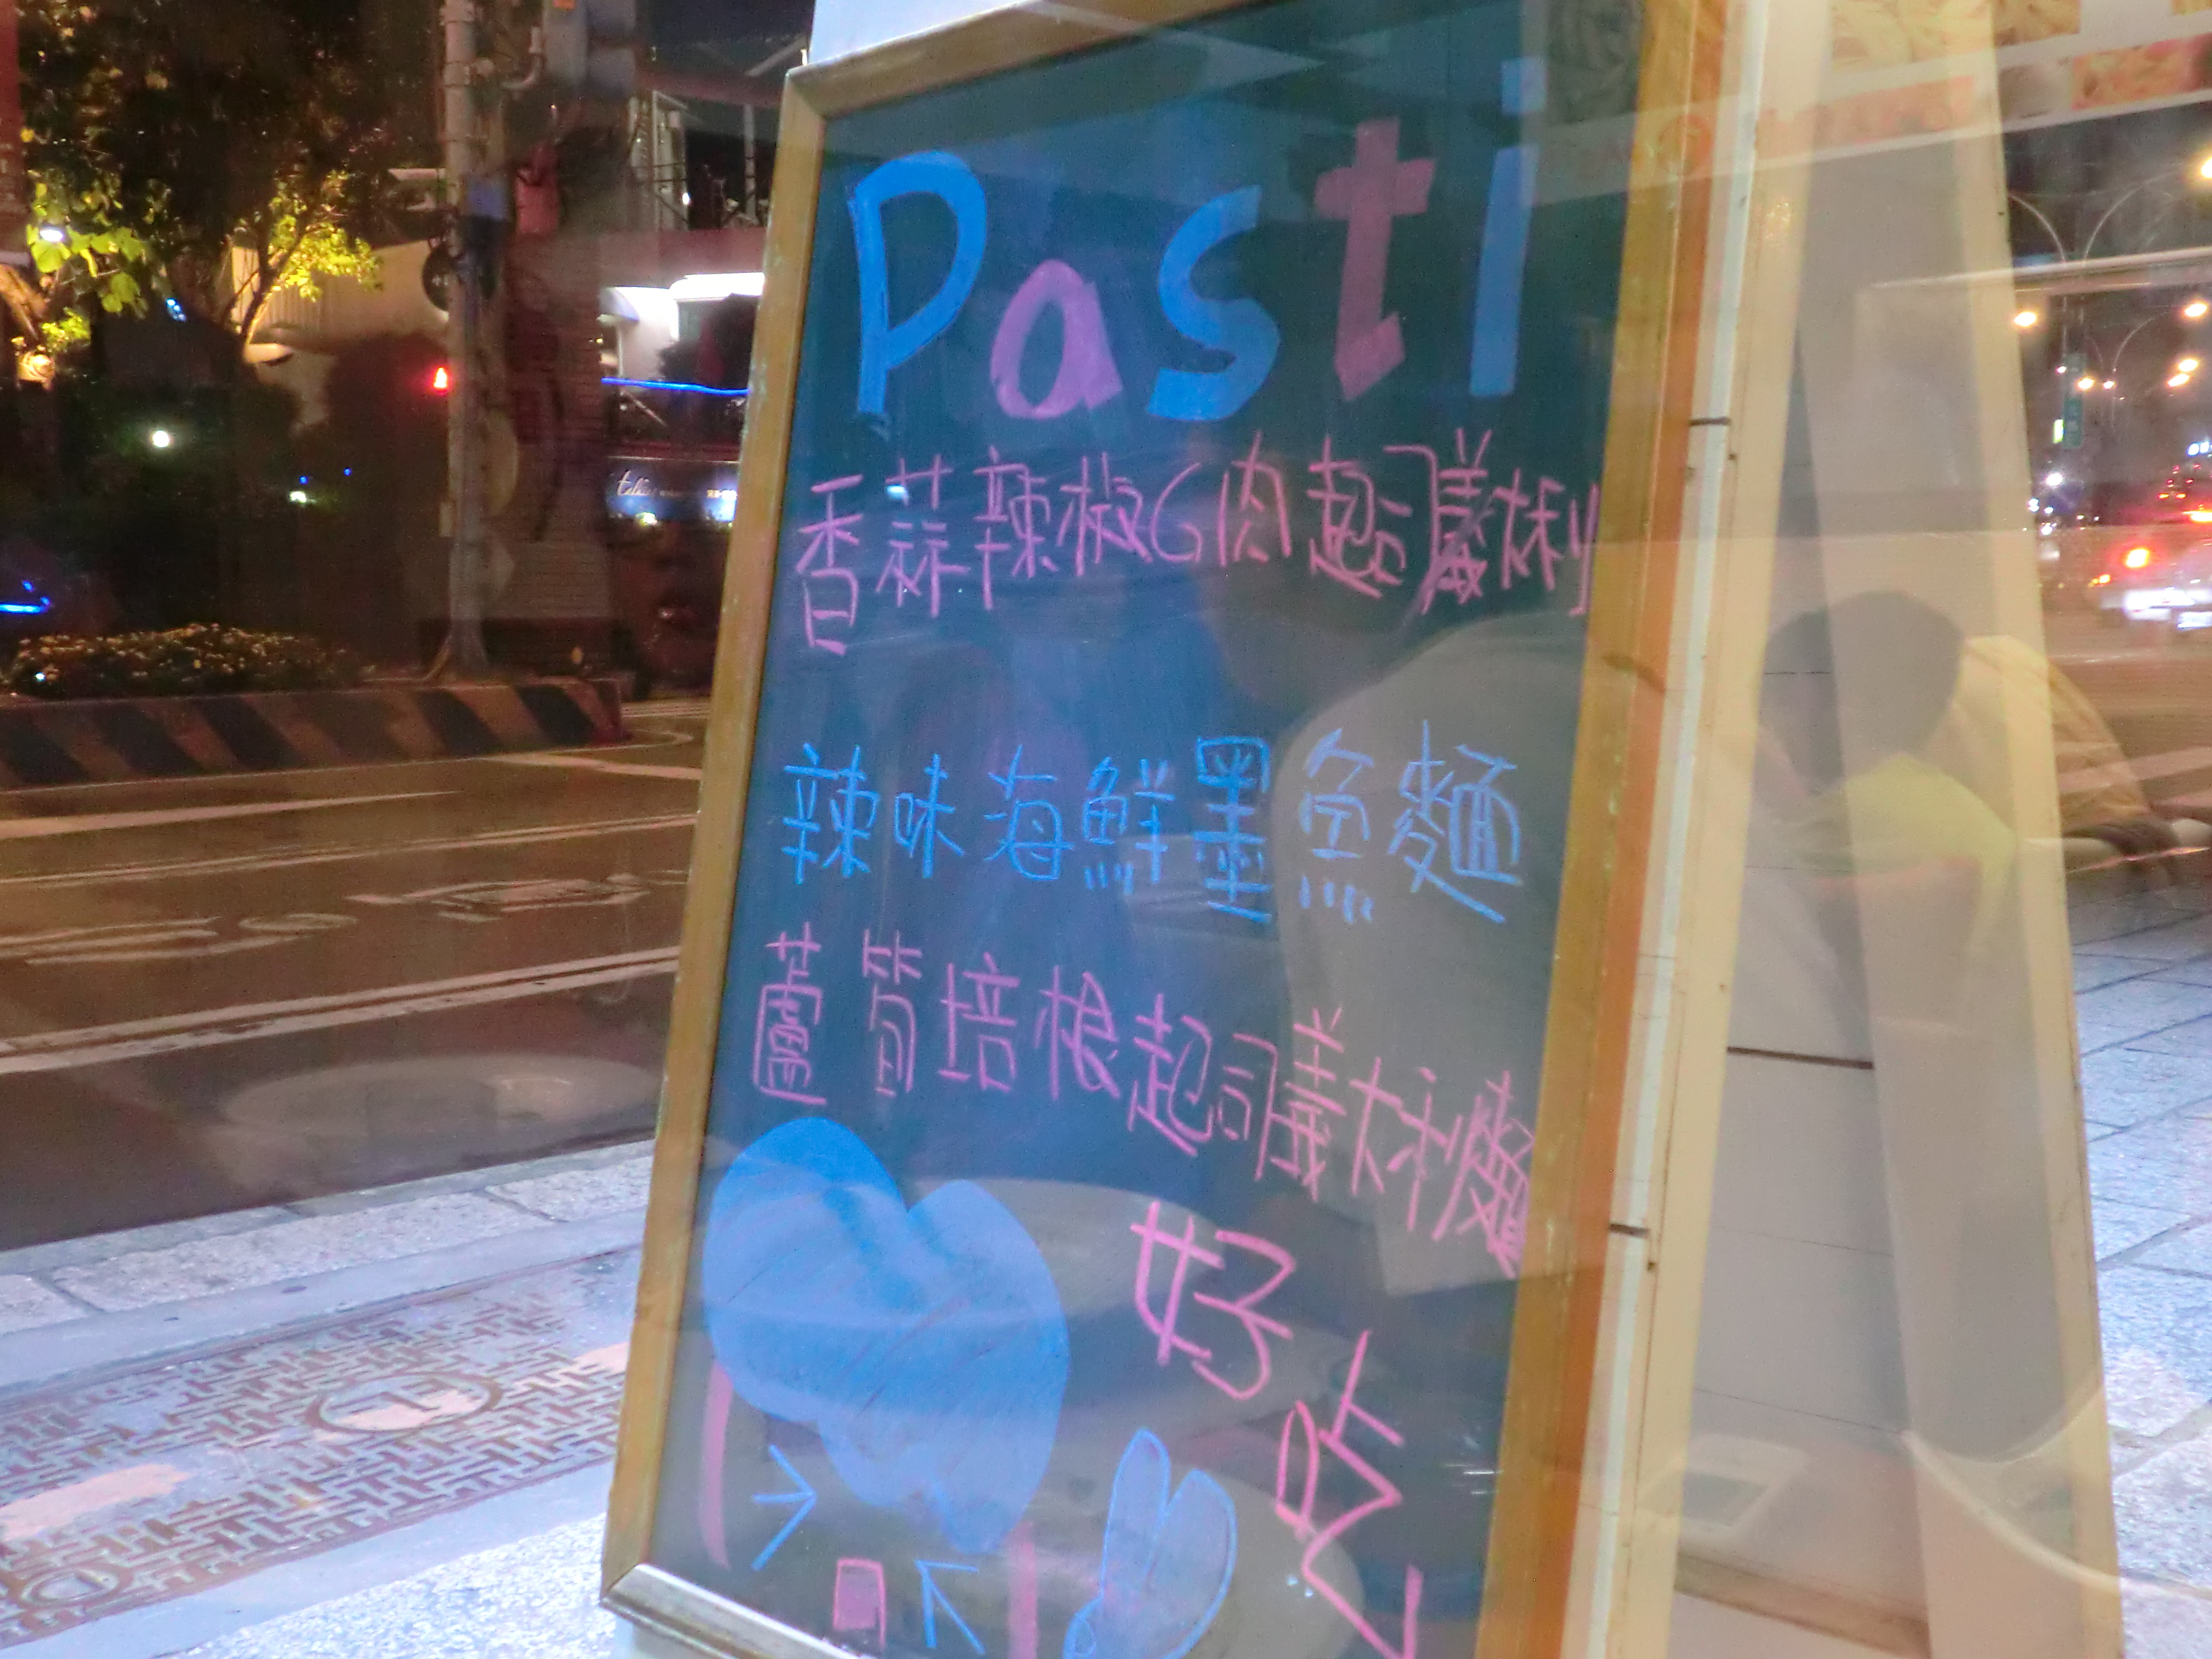 Pasti
香蒜辣椒G肉起司義大利
辣味海鮮墨魚麵
蘆筍培根起司義大利麵
好吃